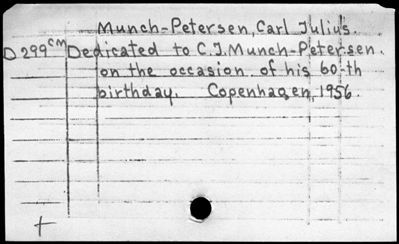 Munch-Petersen, Carl Julius.
D 299 CM Dedicated to C.J. Munch-Petersen.
on the occasion of his 60-th
birthday. Copenhagen, 1956.
+